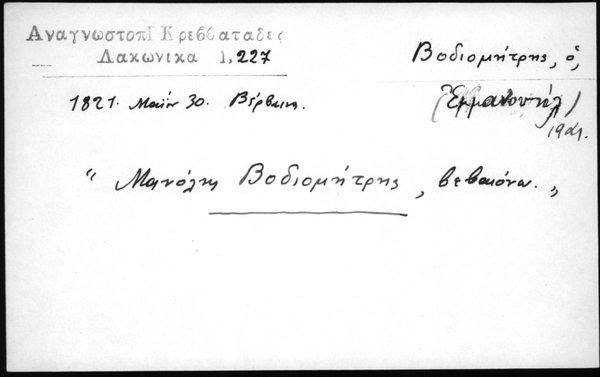 ΑναγνωστοπΙ Κρεββαταδες
Λακωνικα 1,227
Βοδιομήτρης, ὁ,
1821. Μαΐου 30. Βέρβαινα.
(Ἐμμανουήλ)
1921.
“ Μανόλης Βοδιομήτρης, βεβαιόνω. „